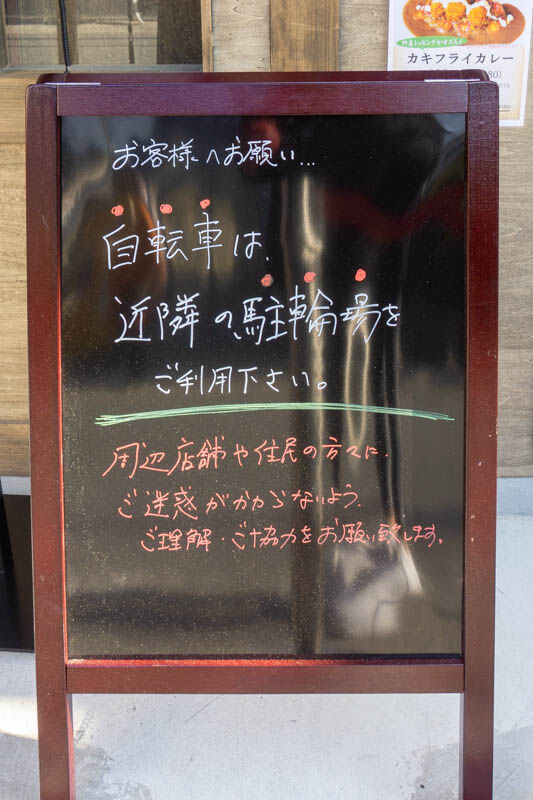 野菜トッピングがオススメ
カキフライカレー
お客様へお願い...
自転車は、
近隣の駐輪場を
ご利用下さい。
周辺店舗や住民の方々に、
ご迷惑がかからないよう、
ご理解・ご協力をお願い致します。